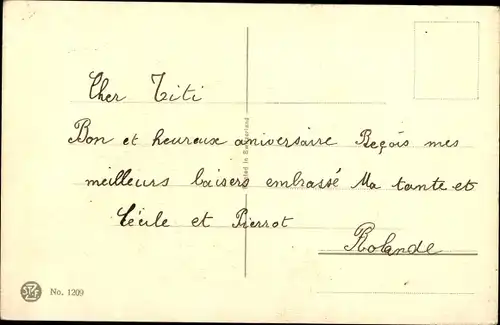 Cher Titi
Bon et heureux aniversaire Reçois mes
meilleurs baisers embrassé Ma tante et
Cécile et Pierrot
Rolande
No. 1209